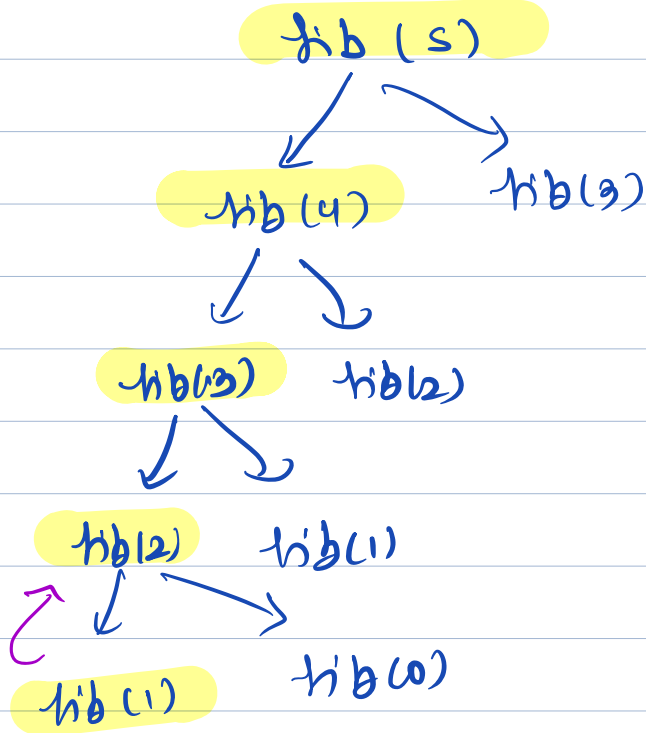 fib(5)
fib(4) fib(3)
fib(3) fib(2)
fib(2) fib(1)
fib(1) fib(0)